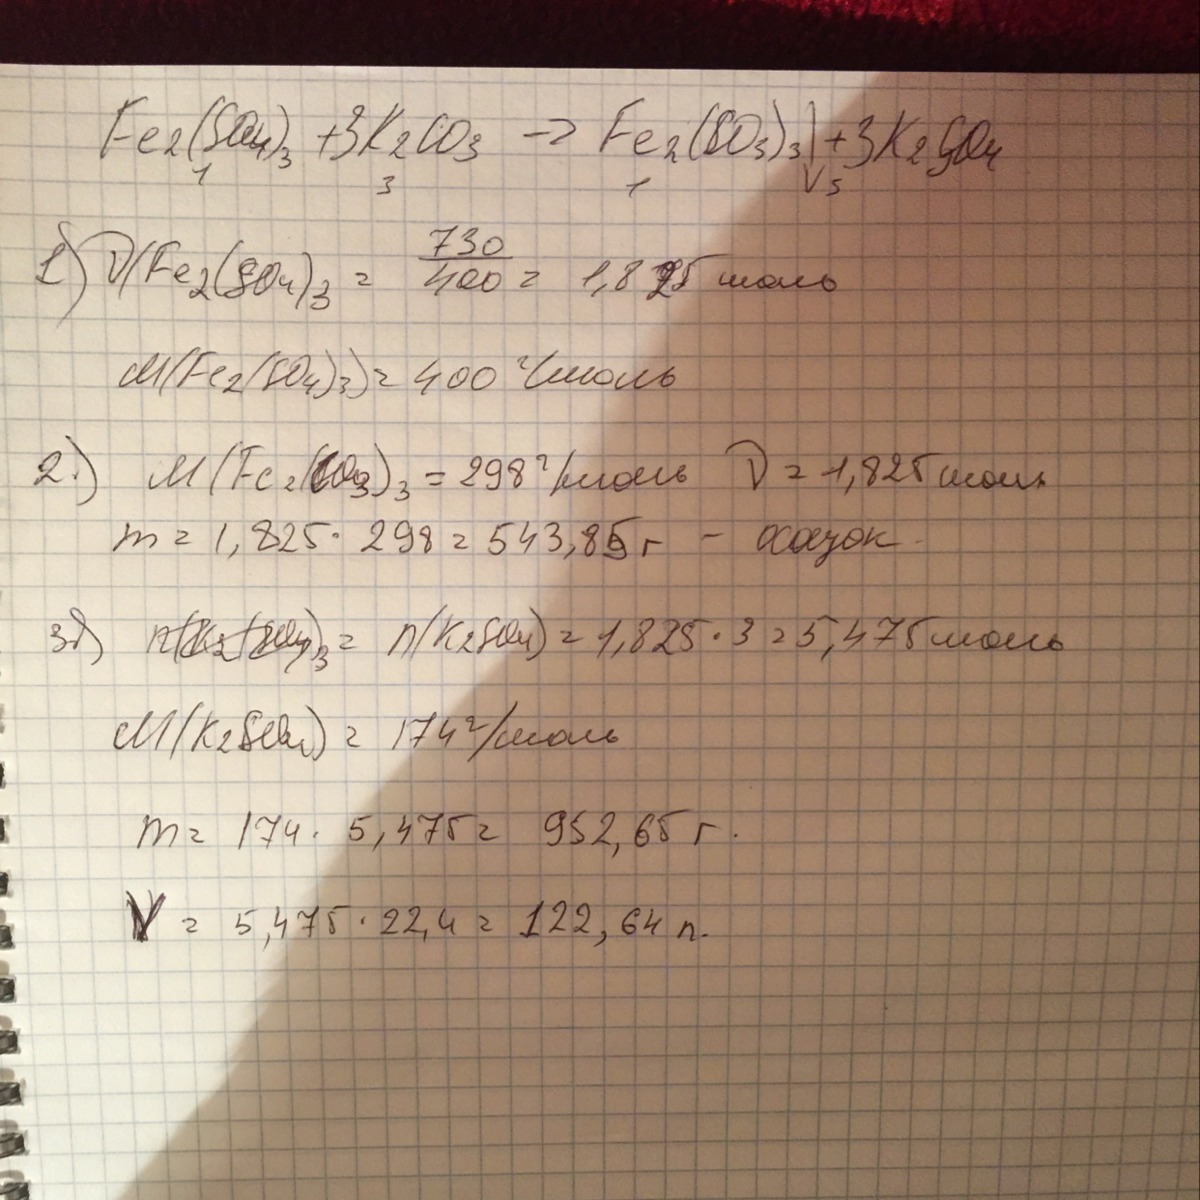 Fe2(SO4)3 + 3K2CO3 → Fe2(SO3)3↓ + 3K2SO4
1 3 1 3
1) ν(Fe2(SO4)3 = 730/400 = 1,825 моль
M(Fe2(SO4)3) = 400 г/моль
2.) M(Fe2(CO3)3 = 298 г/моль ν = 1,825 моль
m = 1,825 · 298 = 543,85 г - осадок.
3) = n(K2SO4) = 1,825 · 3 = 5,475 моль
M(K2SO4) = 174 г/моль
m = 174 · 5,475 = 952,65 г.
V = 5,475 · 22,4 = 122,64 л.